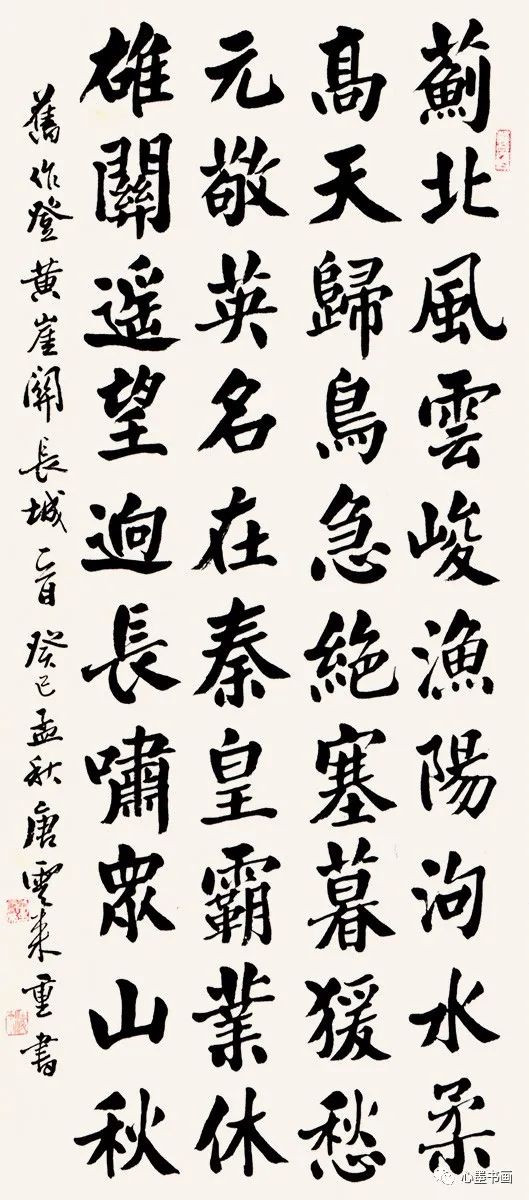 薊北風雲峻漁陽泃水柔
高天歸鳥急絶塞暮猨愁
元敬英名在秦皇霸業休
雄關遥望迥長嘯眾山秋
舊作登黄崖關長城二首 癸巳孟秋唐雲来重書
心墨书画